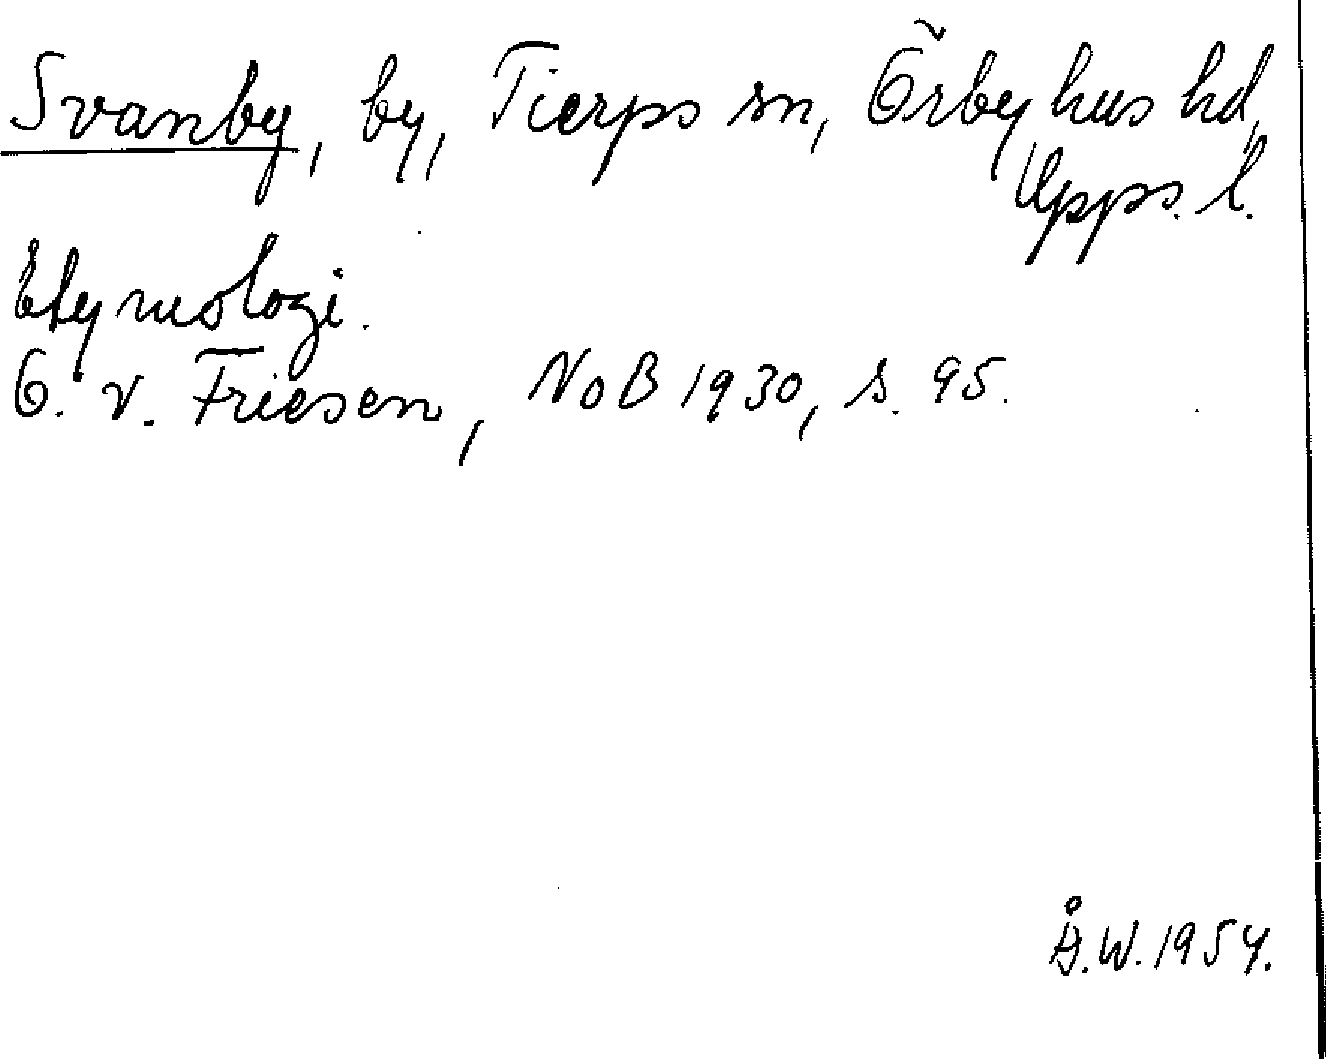 Svanby, by, Tierps sn, Örbyhus hd,
Upps. l.
Etymologi.
O. v. Friesen, NoB 1930, s. 95.
Å.W. 1954.